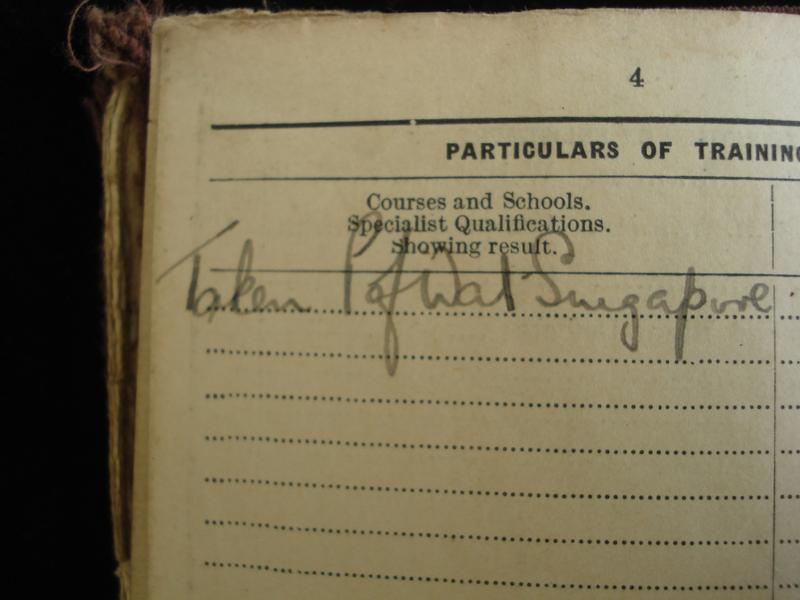 4
PARTICULARS OF TRAINING
Courses and Schools.
Specialist Qualifications.
Showing result.
Taken P of War Singapore